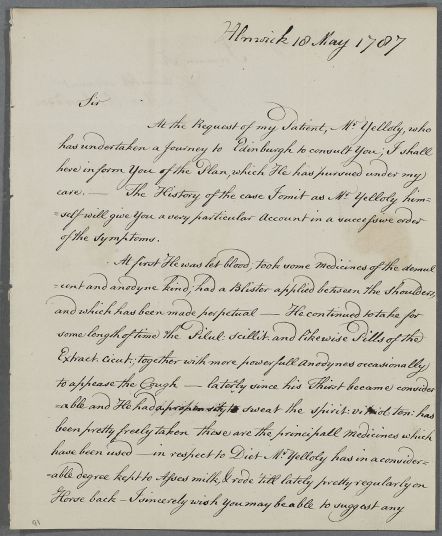 Alnwick 18 May 1787
Sir
At the Request of my Patient, Mr. Yelloly, who
has undertaken a journey to Edinburgh to consult You; I shall
here inform You of the Plan, which He has pursued under my
care. — The History of the case I omit as Mr. Yelloly him-
=self will give You a very particular Account in a successive order
of the symptoms.
At first He was let blood, took some Medicines of the demul
=cent and anodyne kind, had a Blister applied between the shoulders,
and which has been made perpetual — He continued to take for
some length of time the Pilul: scillit. and likewise Pills of the
Extract. cicut: together with more powerfull Anodynes occasionally
to appease the Cough — lately since his Thirst became consider
=able and He had a propensity to sweat the spirit: vitriol: ten: has
been pretty freely taken these are the principall Medicines which
have been used — in respect to Diet Mr. Yelloly has in a consider-
=able degree kept to Asses milk, & rode till lately pretty regularly on
Horse back — I sincerely wish You may be able to suggest any
91